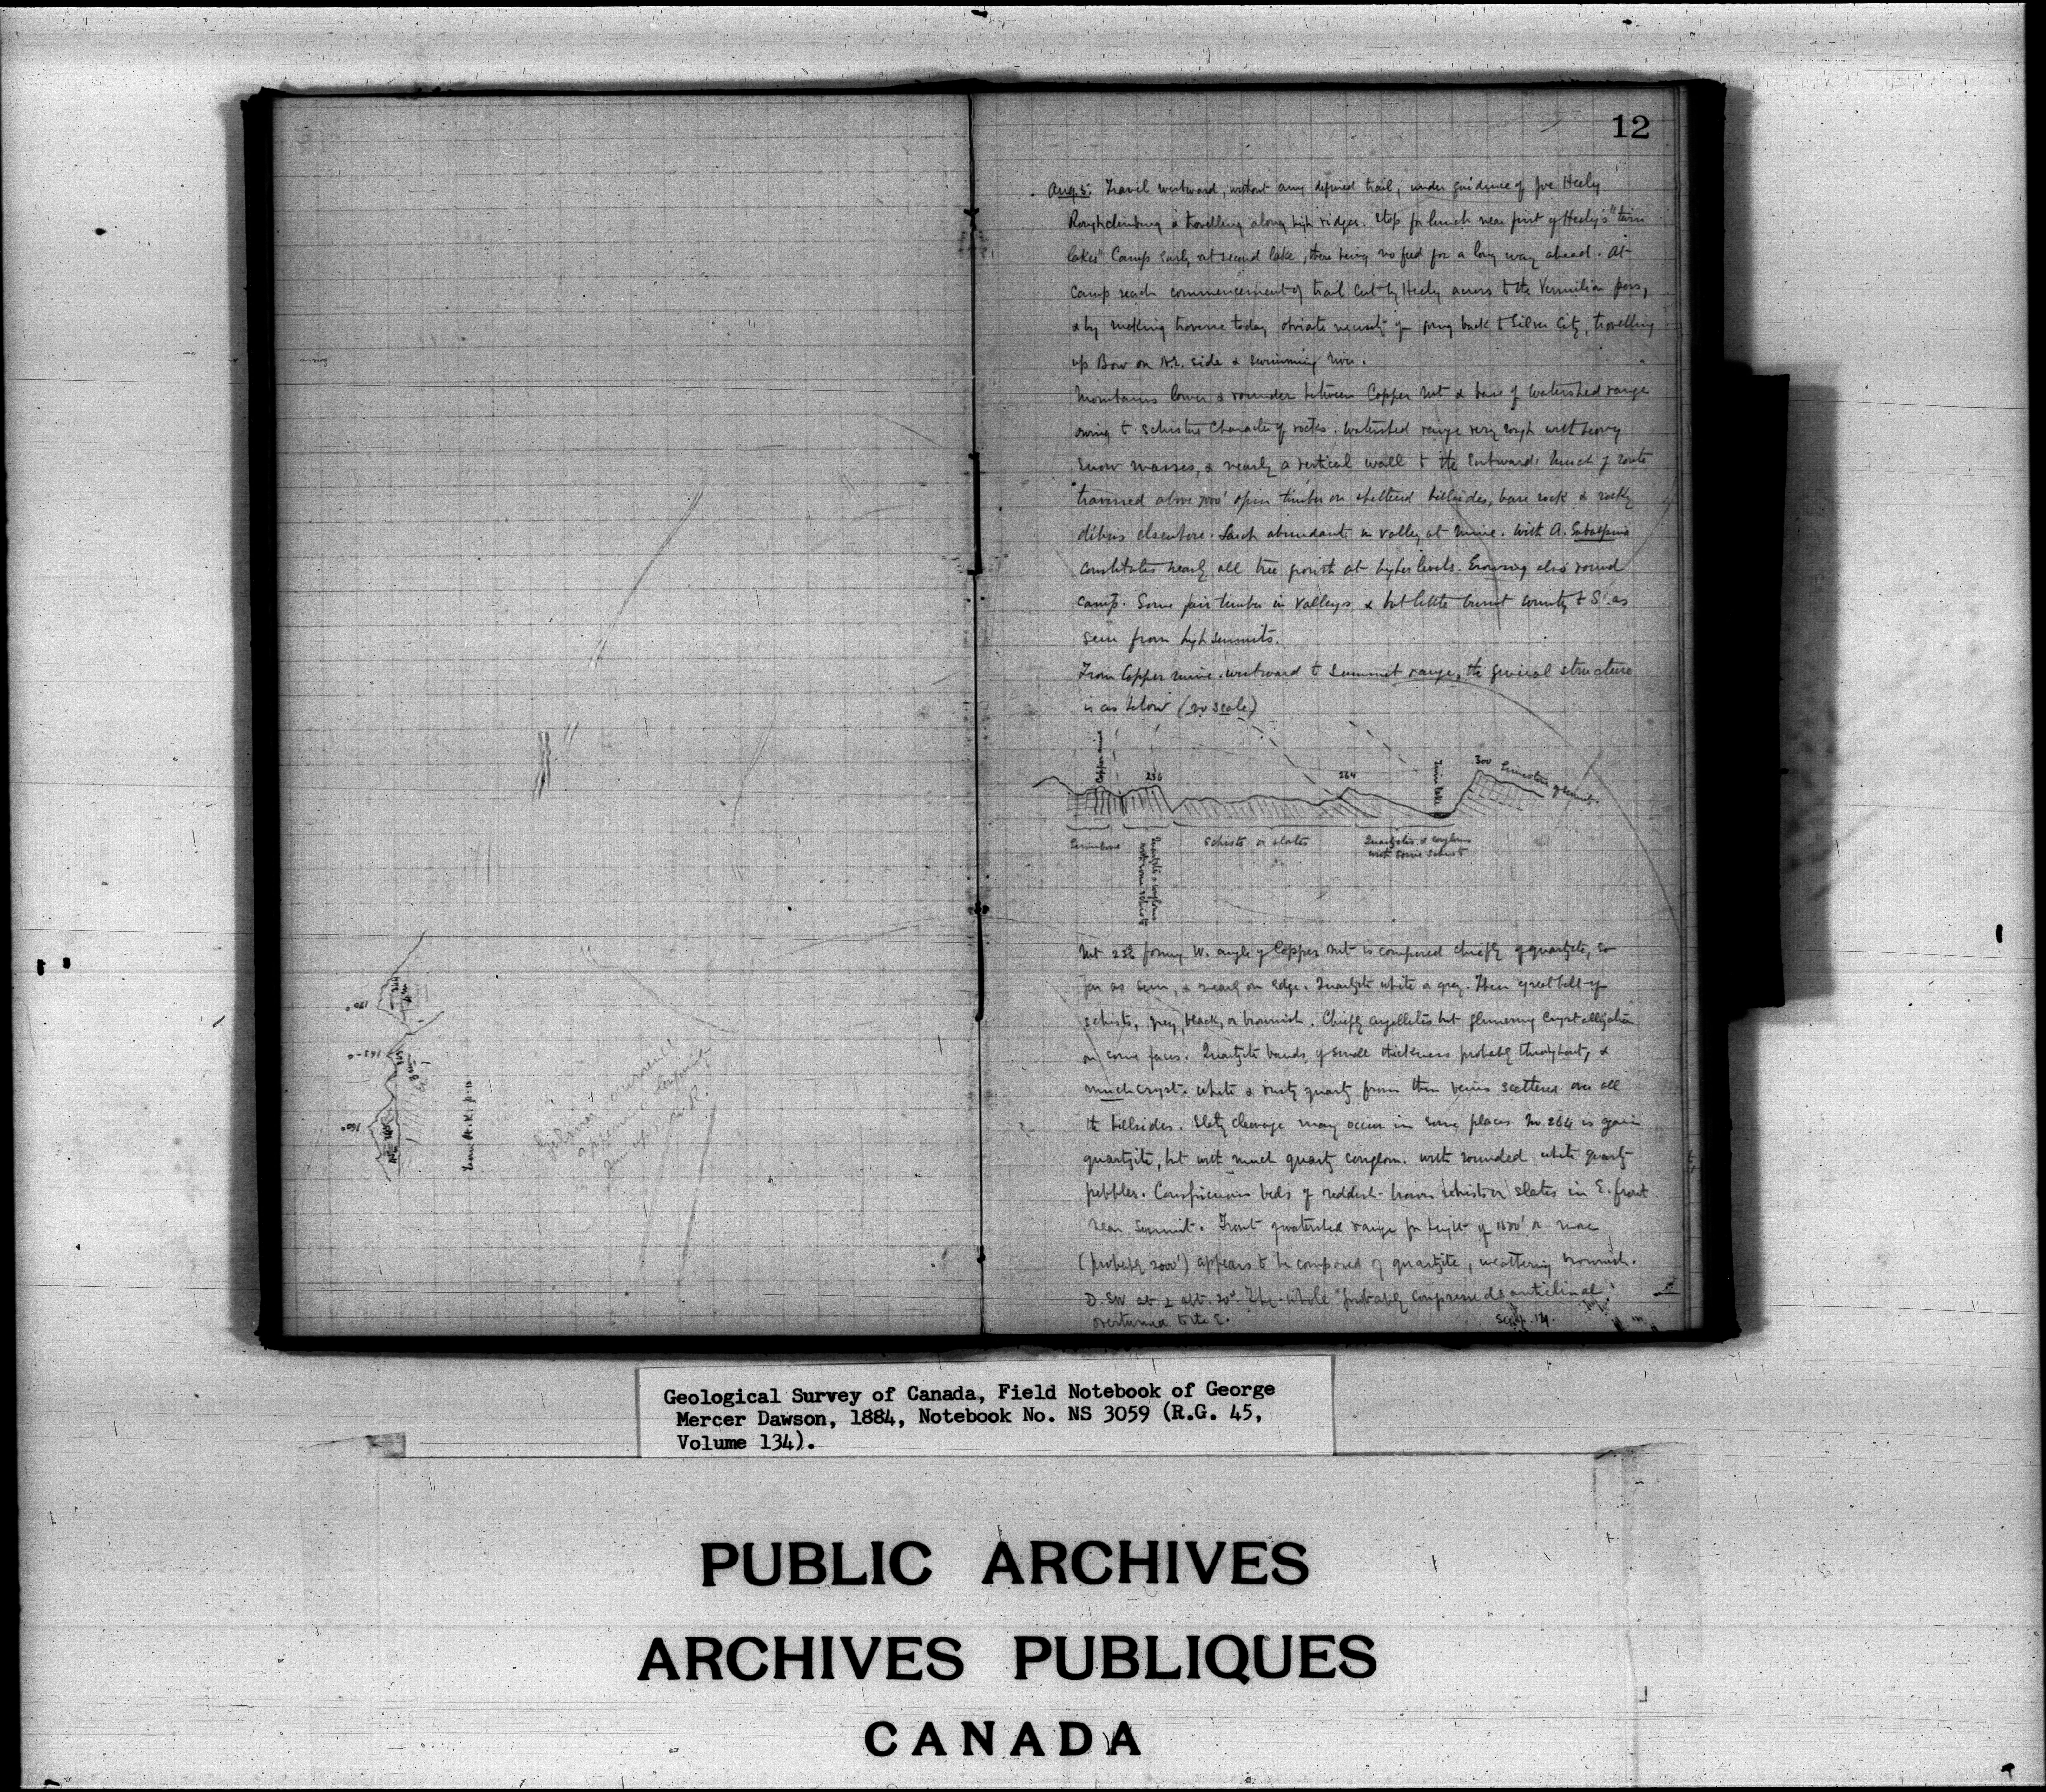 12
Aug. 5. Travel westward, without any defined trail, under guidance of Joe Healy
Rough climbing & travelling along high ridges. Stop for lunch near first of Healy's "twin
lakes" Camp early at second lake, there being no feed for a long way ahead. At
camp reach commencement of trail cut by Healy across to the Vermilion pass,
& by making traverse today obviate necessity of going back to Silver City, travelling
up Bow on N.E. side & swimming river.
Mountains lower & rounder between Copper Mt & base of watershed range
owing to schistose character of rocks. Watershed range very rough with heavy
snow masses, & nearly a vertical wall to the eastward. Much of route
traversed above 7000' open timber on sheltered hillsides, bare rock & rocky
débris elsewhere. Larch abundant in valley at mine. With A. Subalpina
constitutes nearly all tree growth at higher levels. Growing also round
camp. Some fair timber in valleys & but little burnt country to S. as
seen from high summits.
From Copper mine westward to summit range, the general structure
is as below (no scale)
Copper mine
236
264
Twin Lake
300 Limestone
Limestone
Quartzite & conglom
with some schist
Schists or slates
Quartzites & conglom
with some schist
Mt 236 forming W. angle of Copper Mt is composed chiefly of quartzite, so
far as seen, & nearly on edge. Quartzite white or grey. Then great belt of
schists, grey, black, or brownish. Chiefly argillites but glimmering crystallization
on some faces. Quartzite bands of small thickness probably throughout, &
much cryst. white & rusty quartz from thin veins scattered over all
the hillsides. Slaty cleavage may occur in some places. Mt. 264 is again
quartzite, but with much quartz conglom. with rounded white quartz
pebbles. Conspicuous beds of reddish-brown schists or slates in E. front
near summit. Front of watershed range for height of 1500' or more
(probably 2000') appears to be composed of quartzite, weathering brownish.
D. SW at 20°. The whole probably compressed anticlinal
overturned to the E.
190°
162°
160°
from p. 10
appearance
up Bow R.
Geological Survey of Canada, Field Notebook of George
Mercer Dawson, 1884, Notebook No. NS 3059 (R.G. 45,
Volume 134).
PUBLIC ARCHIVES
ARCHIVES PUBLIQUES
CANADA